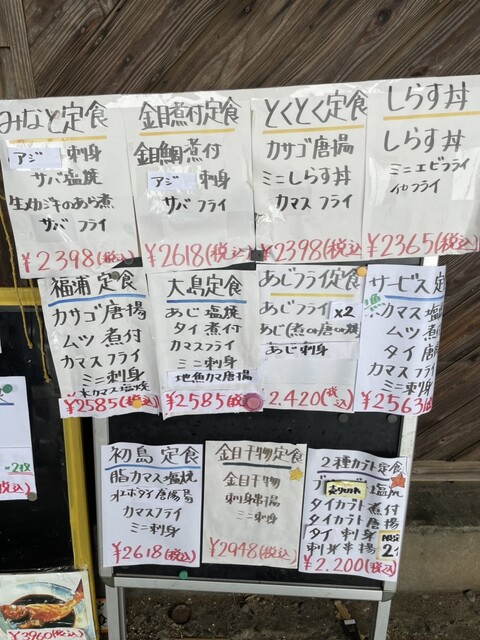 みなと定食
アジ 刺身
サバ塩焼
生メカジキのあら煮
サバ フライ
¥2398(税込)
金目煮付定食
金目鯛煮付
アジ 刺身
サバ フライ
¥2618(税込)
とくとく定食
カサゴ唐揚
ミニしらす丼
カマス フライ
¥2398(税込)
しらす丼
しらす丼
ミニエビフライ
イカフライ
¥2365(税込)
福浦 定食
カサゴ唐揚
ムツ 煮付
カマスフライ
ミニ刺身
カマス塩焼
¥2585(税込)
大島定食
あじ 塩焼
タイ 煮付
カマスフライ
ミニ刺身
地魚カマ唐揚
¥2585(税
あじフライ定食
あじフライ x2
あじ(煮or唐or焼)
あじ刺身
2,420(税込)
サービス定
魚
カマス 塩焼
ムツ 煮
タイ 唐
カマス フ
ミニ刺身
¥2563(
初島 定食
脂カマス塩焼
オエボダイ唐揚
カマスフライ
ミニ刺身
¥2618(税込)
金目干物定食
金目干物
刺身串揚
ミニ刺身
¥2948(税込)
2種カブト定食
売り切れ 塩焼
タイカブト 煮付
タイカブト 唐揚
タイ 刺身
刺身串揚
限定
2
¥2.200(税込)
2枚
税込)
¥3960(税込)